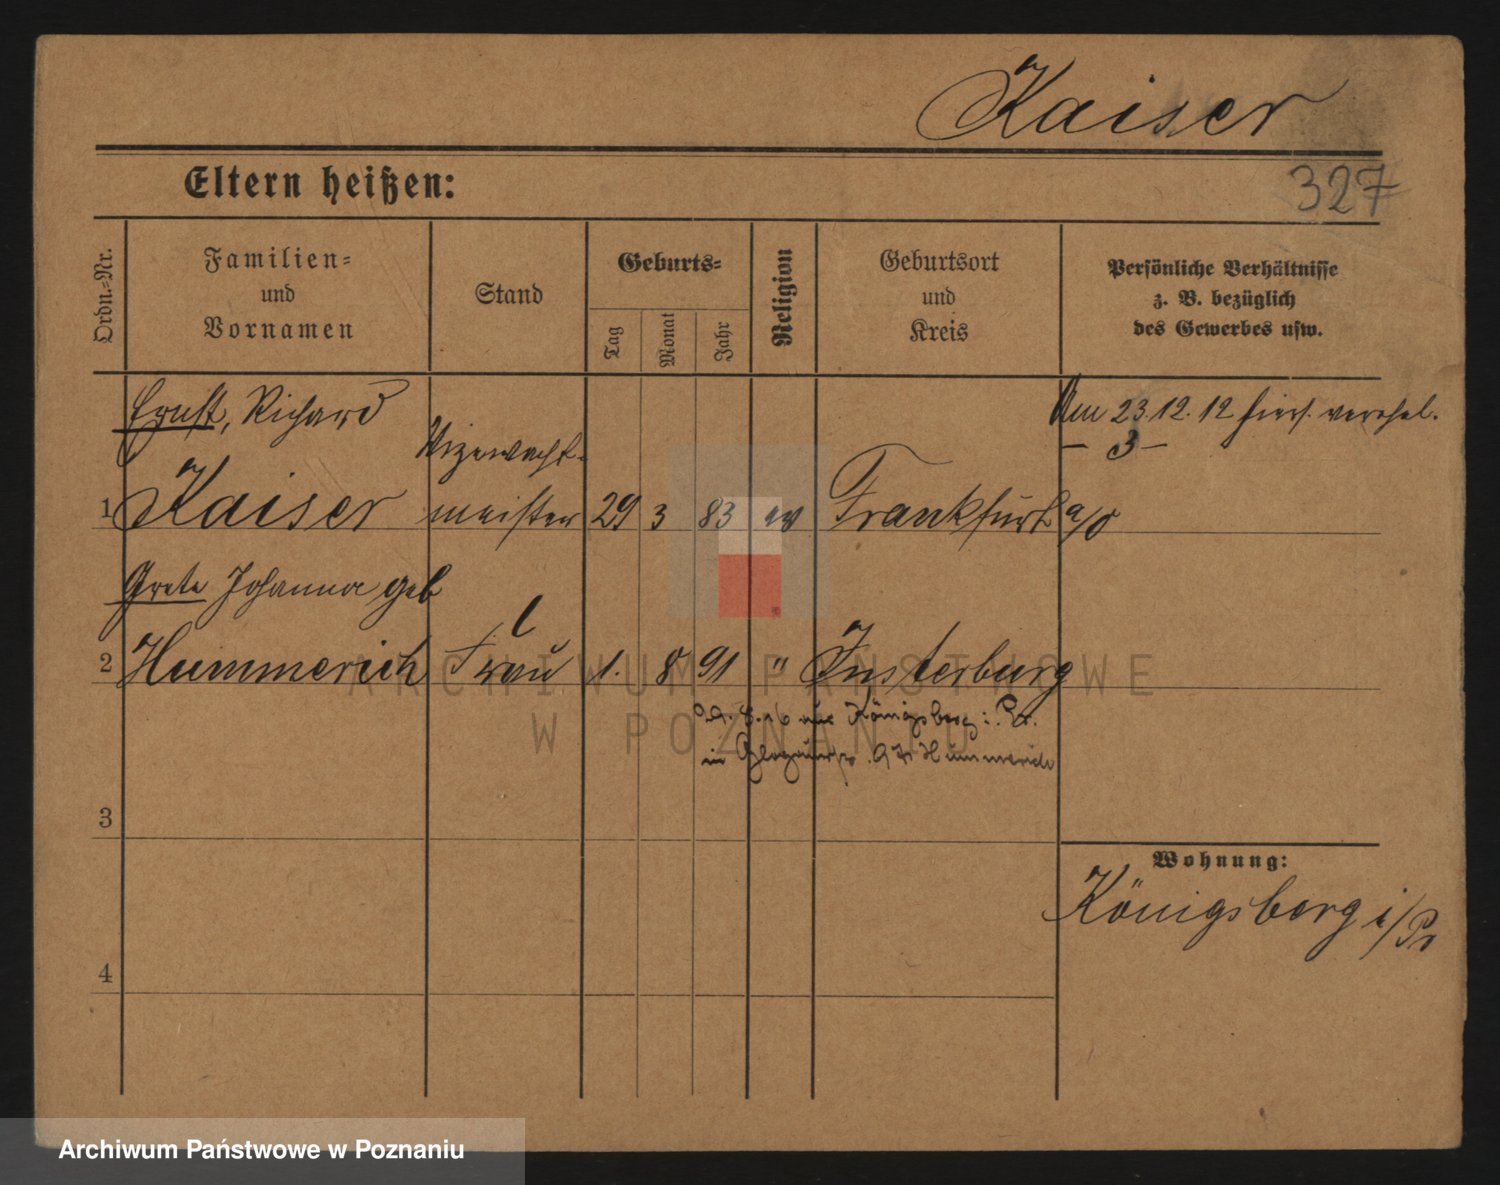 Kaiser
327
Eltern heißen:
Ordn.-Nr.
Familien-
und
Vornamen
Stand
Geburts-
Tag
Monat
Jahr
Religion
Geburtsort
und
Kreis
Persönliche Verhältnisse
z. B. bezüglich
des Gewerbes usw.
Ernst, Richard
Vizewacht-
Am 23.12.12 hiers. verehel.
– 3 –
1 Kaiser meister 29 3 83 ev Frankfurt a/O
Grete Johanna geb
2 Hummerich Frau 1. 8 91 " Insterburg
8.16 aus Königsberg i. Pr.
in Hummerich
3
Wohnung:
Königsberg i/Pr
4
ARCHIWUM PAŃSTWOWE
W POZNANIU
Archiwum Państwowe w Poznaniu